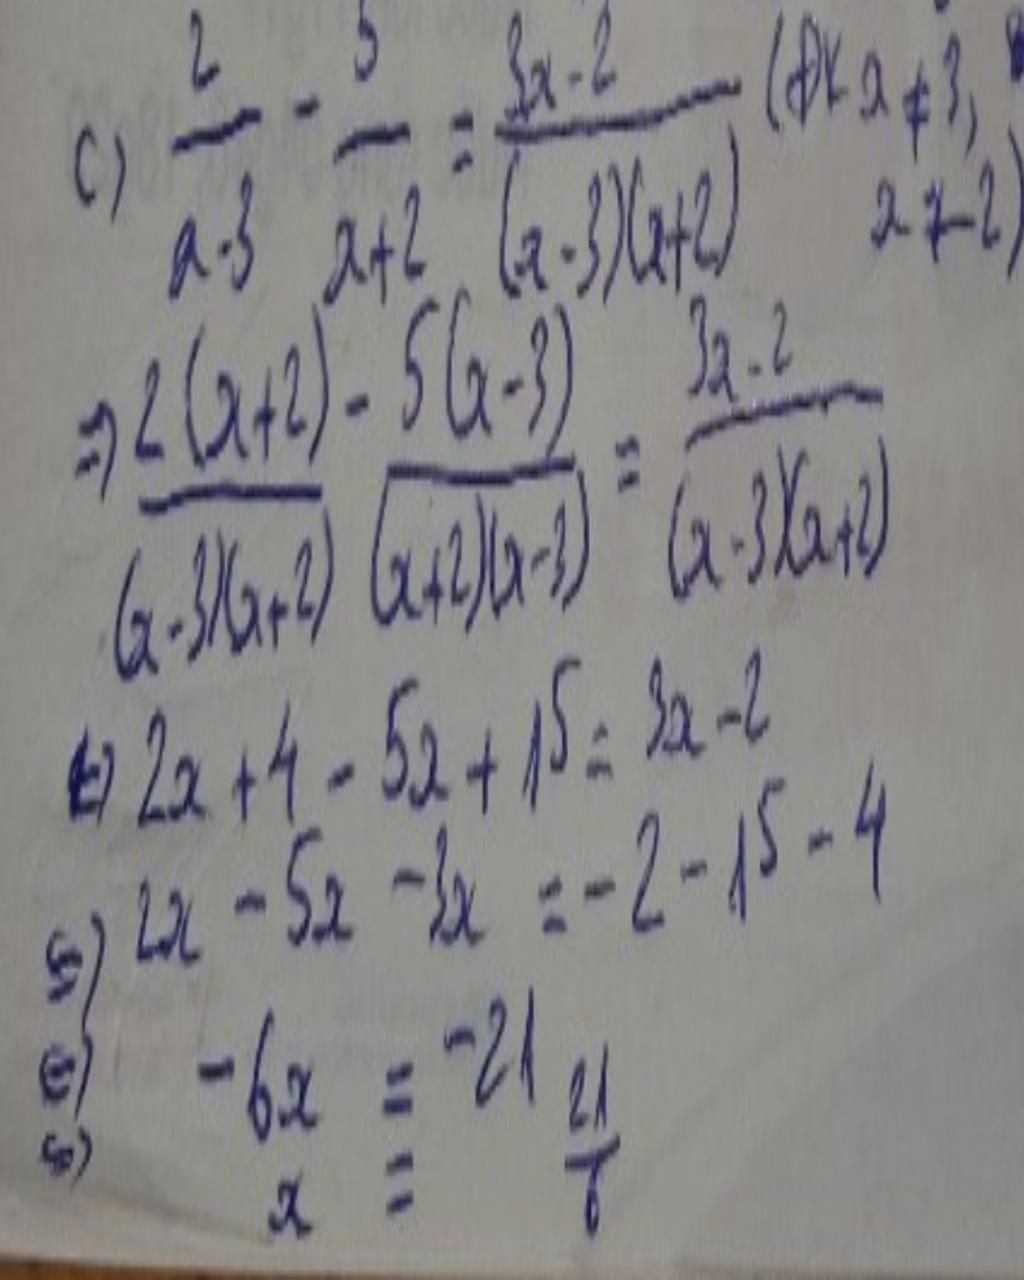 c) 2/(x-3) - 5/(x+2) = (3x-2)/((x-3)(x+2)) (ĐK x ≠ 3,
x ≠ -2)
=> 2(x+2)/((x-3)(x+2)) - 5(x-3)/((x+2)(x-3)) = (3x-2)/((x-3)(x+2))
<=> 2x + 4 - 5x + 15 = 3x - 2
<=> 2x - 5x - 3x = -2 - 15 - 4
<=> -6x = -21
<=> x = 21/6